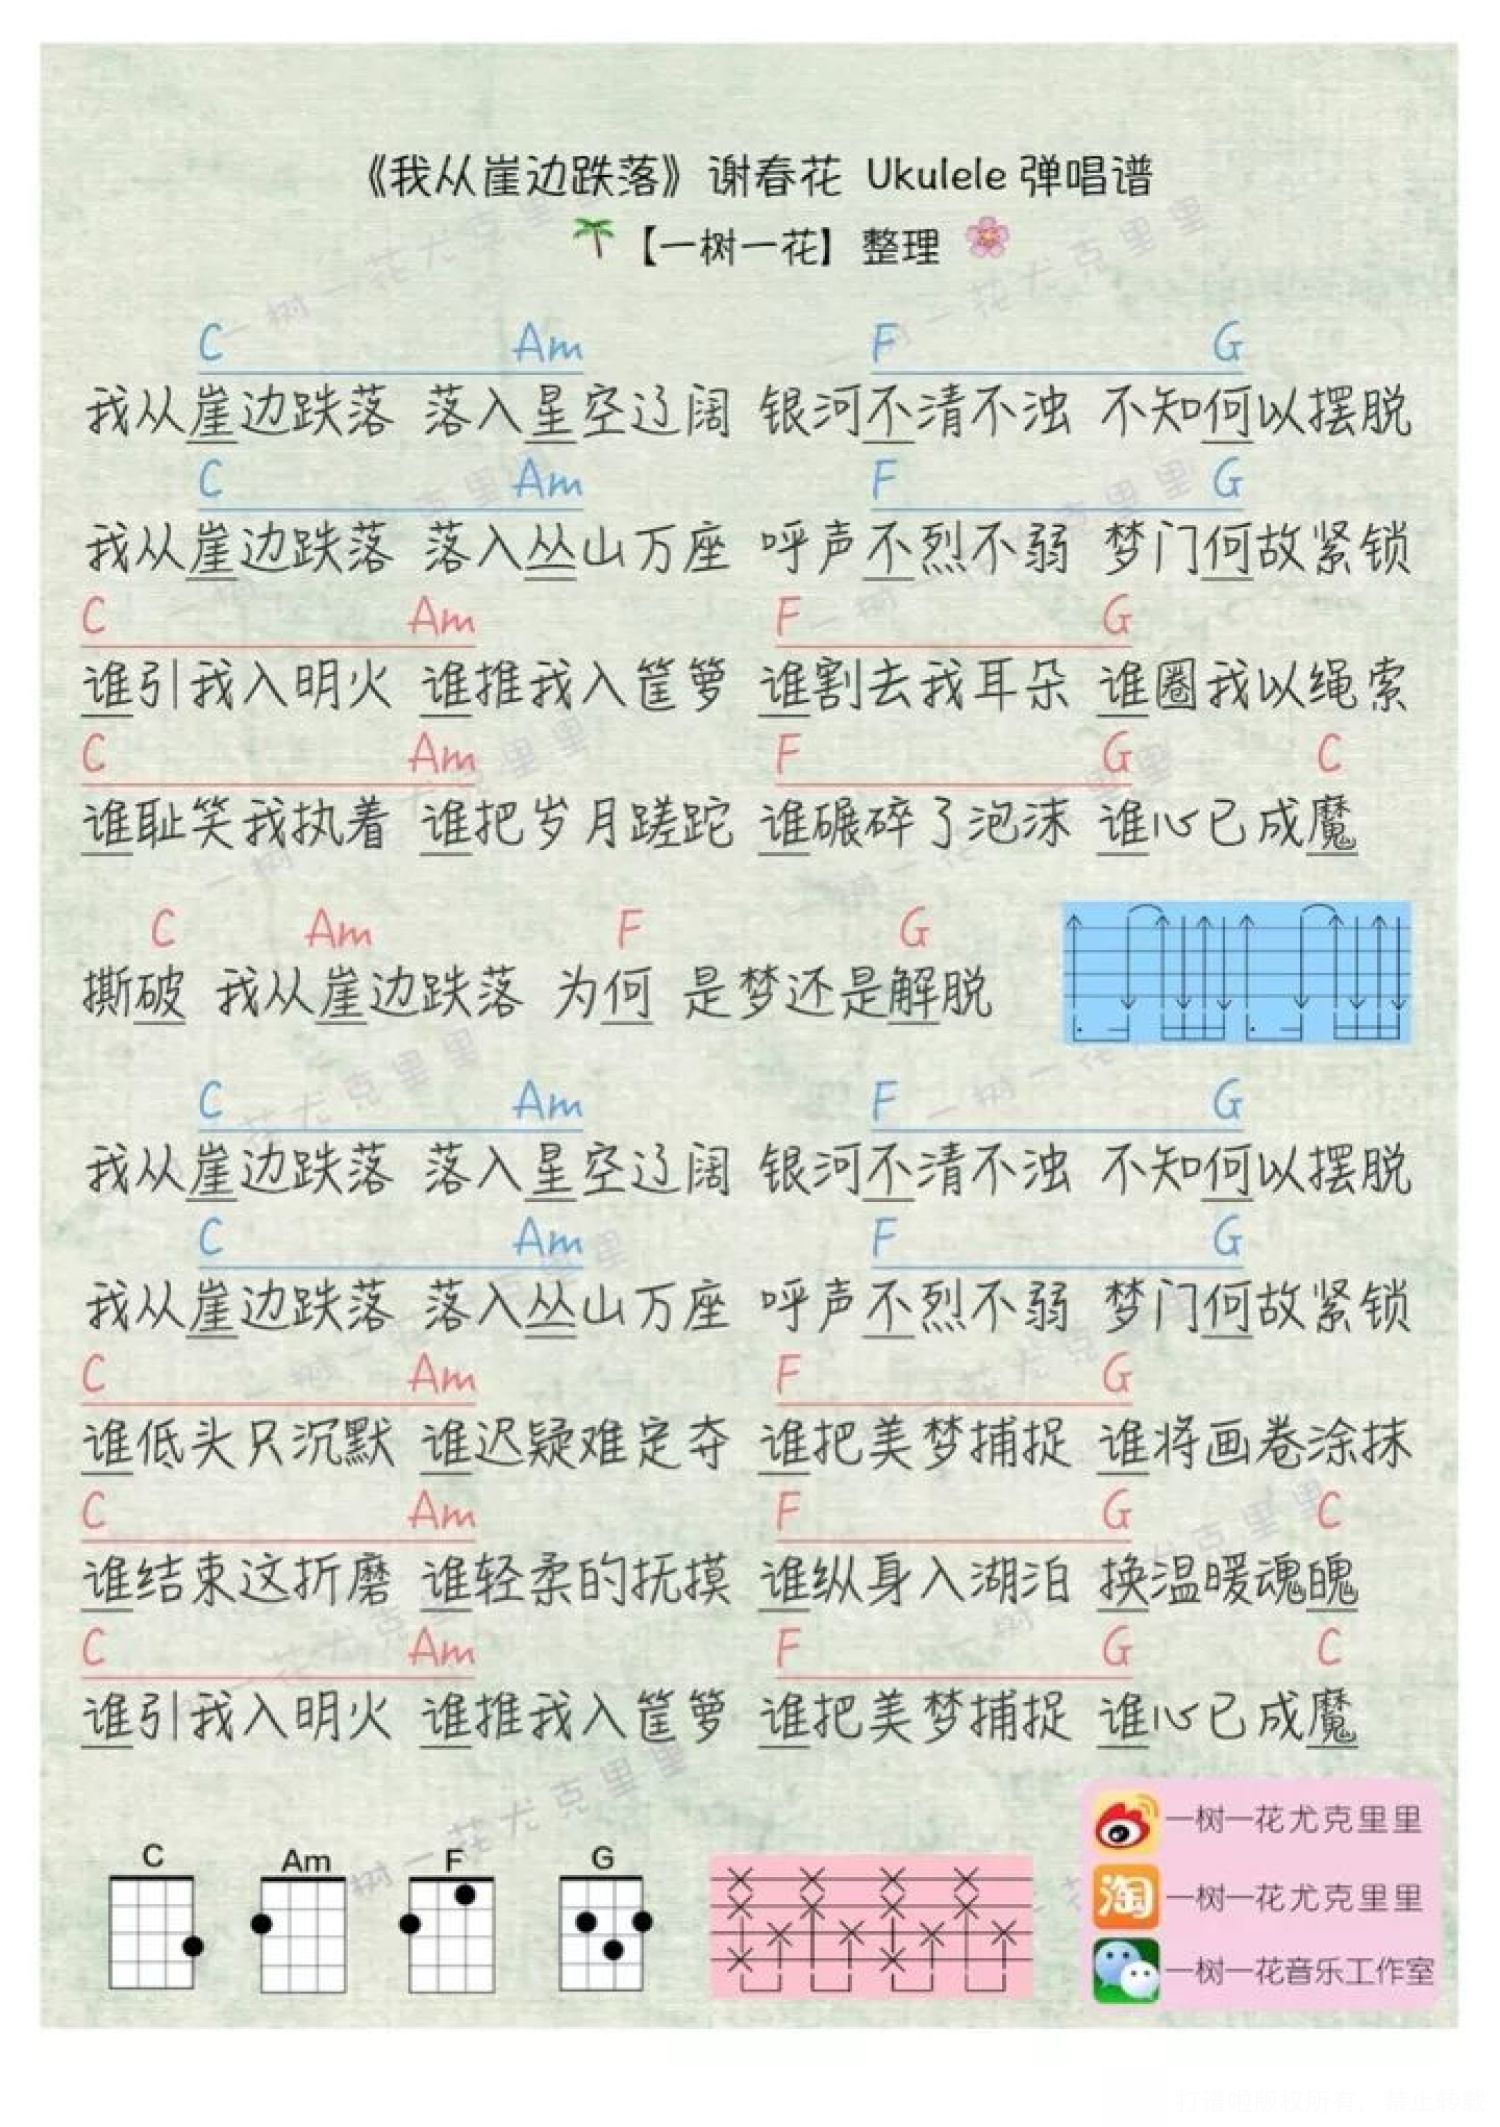 《我从崖边跌落》谢春花 Ukulele 弹唱谱
【一树一花】整理
C Am F G
我从崖边跌落 落入星空辽阔 银河不清不浊 不知何以摆脱
C Am F G
我从崖边跌落 落入丛山万座 呼声不烈不弱 梦门何故紧锁
C Am F G
谁引我入明火 谁推我入筐箩 谁割去我耳朵 谁圈我以绳索
C Am F G C
谁耻笑我执着 谁把岁月蹉跎 谁碾碎了泡沫 谁心已成魔
C Am F G
撕破 我从崖边跌落 为何 是梦还是解脱
C Am F G
我从崖边跌落 落入星空辽阔 银河不清不浊 不知何以摆脱
C Am F G
我从崖边跌落 落入丛山万座 呼声不烈不弱 梦门何故紧锁
C Am F G
谁低头只沉默 谁迟疑难定夺 谁把美梦捕捉 谁将画卷涂抹
C Am F G C
谁结束这折磨 谁轻柔的抚摸 谁纵身入湖泊 换温暖魂魄
C Am F G C
谁引我入明火 谁推我入筐箩 谁把美梦捕捉 谁心已成魔
C Am F G
一树一花尤克里里
淘 一树一花尤克里里
一树一花音乐工作室